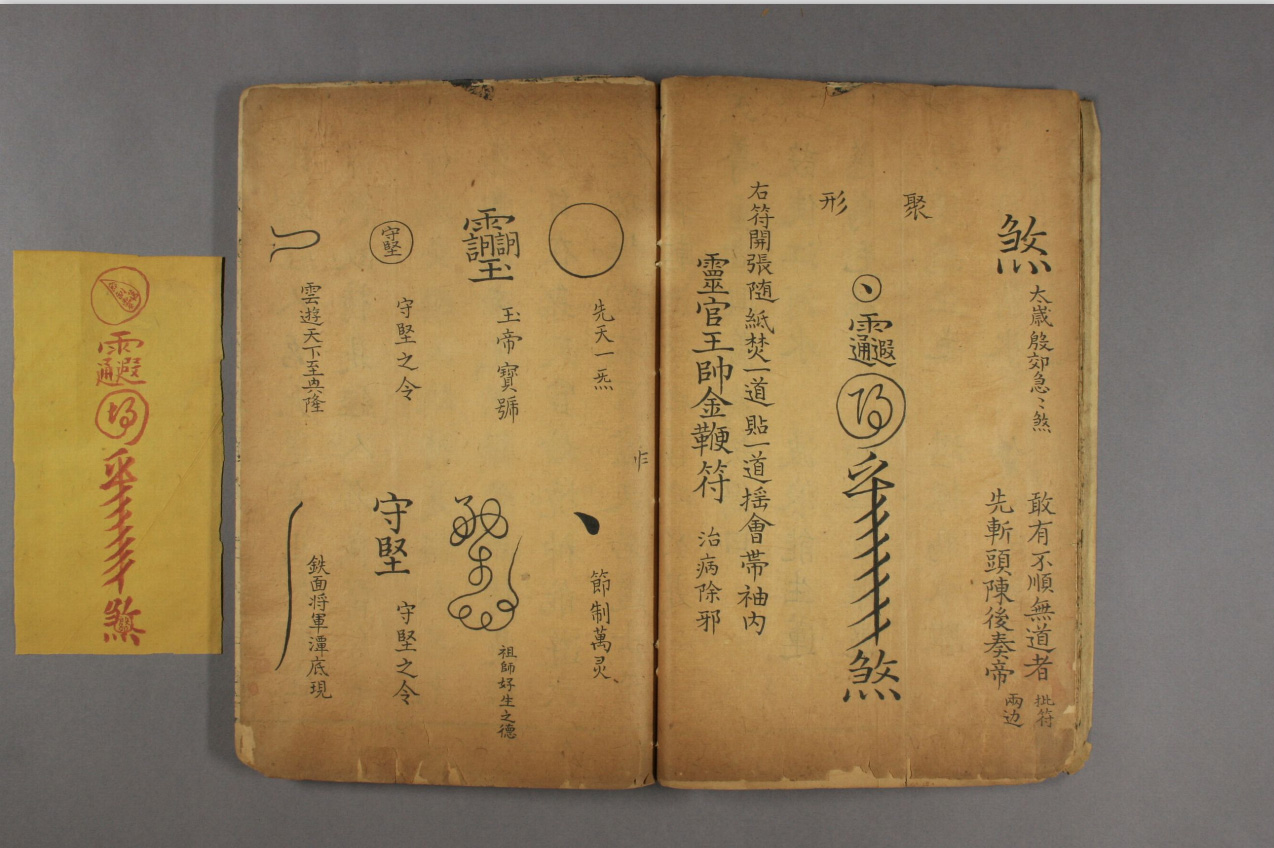 煞
太歲殷郊急〻煞
敢有不順無道者
先斬頭陳後奏帝
批符
兩边
聚
形
煞
右符開張随紙焚一道貼一道揺會帶袖内
靈官王帥金鞭符
治病除邪
先天一炁
節制萬灵
玉帝寳號
祖師好生之德
守堅
守堅之令
守堅
守堅之令
雲遊天下至典隆
鉄面将軍潭底現
煞